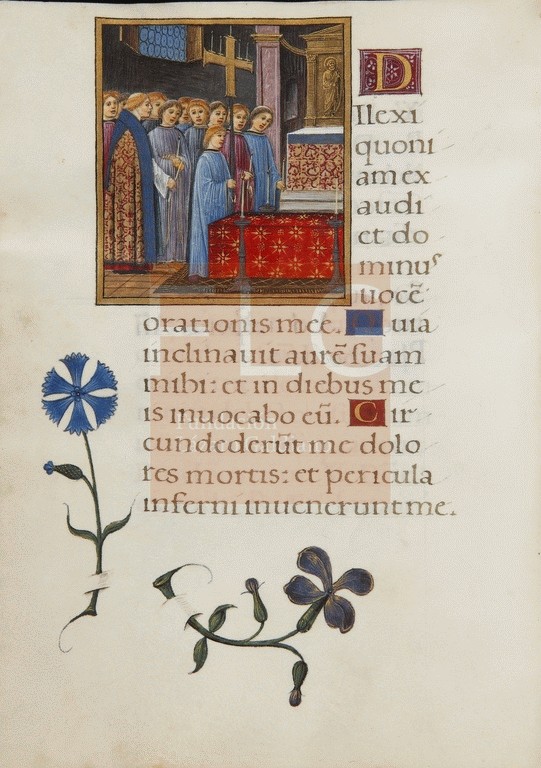 D
Ilexi
quoni
am ex
audi
et do
minus
uocē
orationis mee. Quia
inclinauit aurē suam
mihi: et in diebus me
is inuocabo eū. Cir
cundederūt me dolo
res mortis: et pericula
inferni inuenerunt me.
FLG
Fundación